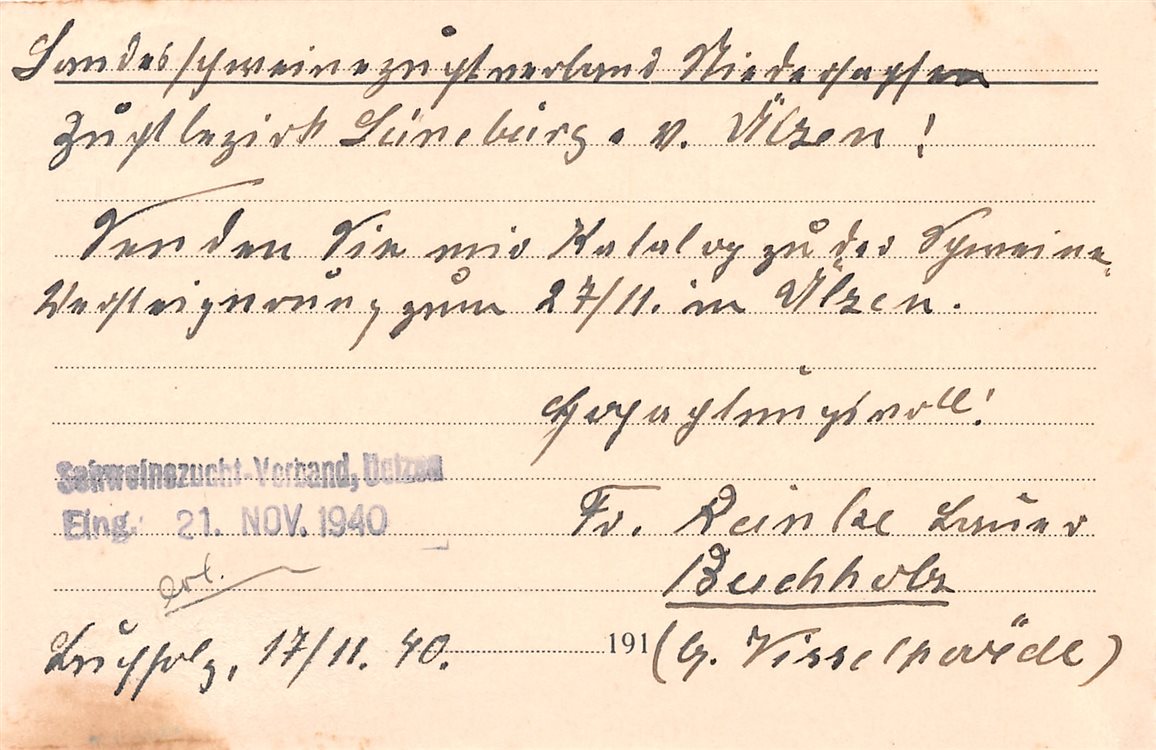 Landesschweinezuchtverband Niedersachsen
Zuchtbezirk Lüneburg e. V. Ülzen!
Senden Sie mir Katalog zu der Schweine-
Versteigerung zum 27/11. in Ülzen.
Hochachtungsvoll!
Schweinezucht-Verband, Uelzen
Eing. 21. NOV. 1940
Fr. Reinke Bauer
Buchholz
erl.
Buchholz, 17/11. 40. 191
(b. Visselhövede)